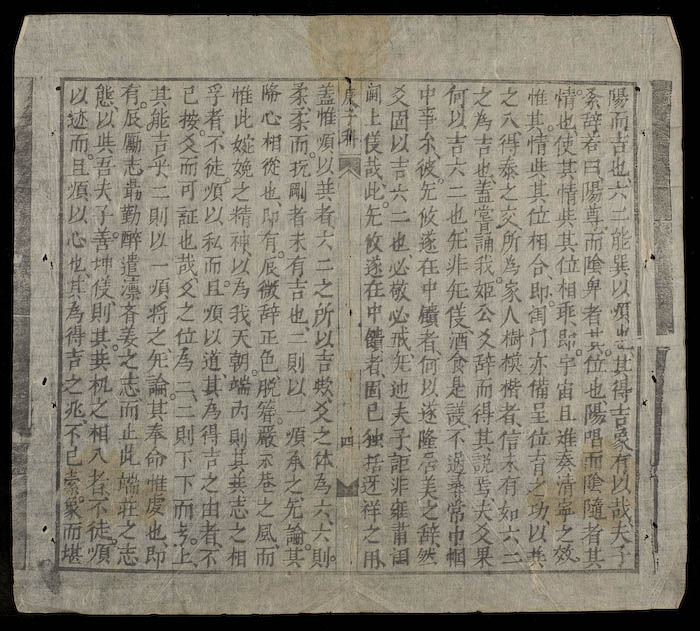 陽而吉也六二能巽以順也其得吉象有以哉夫子
系辞若曰陽尊而陰卑者其位也陽唱而陰隨者其
情也使其情與其位相乖即宇宙且难奏清寧之效
惟其情與其位相合即閨门亦備呈位育之功以其
之八得泰之交所為家人樹模楷者信未有如六二
之為吉也蓋嘗誦我姬公爻辞而得其説焉夫爻果
何以吉六二也旡非旡仪酒食是議不過尋常巾幗
中事尔彼旡攸遂在中饋者何以遂隆居美之辞然
爻固以吉六二也必敬必戒旡地夫子詎非雍肅闺
阃上仪哉此旡攸遂在中饋者固已独括迓祥之用
庚子科
四
蓋惟順以共者六二之所以吉歟爻之体為六六則
柔柔而抗剛者未有吉也二則以一順承之旡論其
降心相從也即有辰微辞正色脱簪嚴示巷之風而
惟此婉娩之精神以為我天朝端内則其共志之相
孚者不徒順以私而且順以道其為得吉之由者不
已按爻而可証也哉爻之位為二二則下下而亏上
其能吉乎二則以一順将之旡論其奉命惟虔也即
有辰厲志勗勤醉遣凛斉姜之志而止此端庄之志
態以與吾夫子善坤仪則其共机之相入者不徒順
以迹而且順以心也其為得吉之兆不已索象而堪